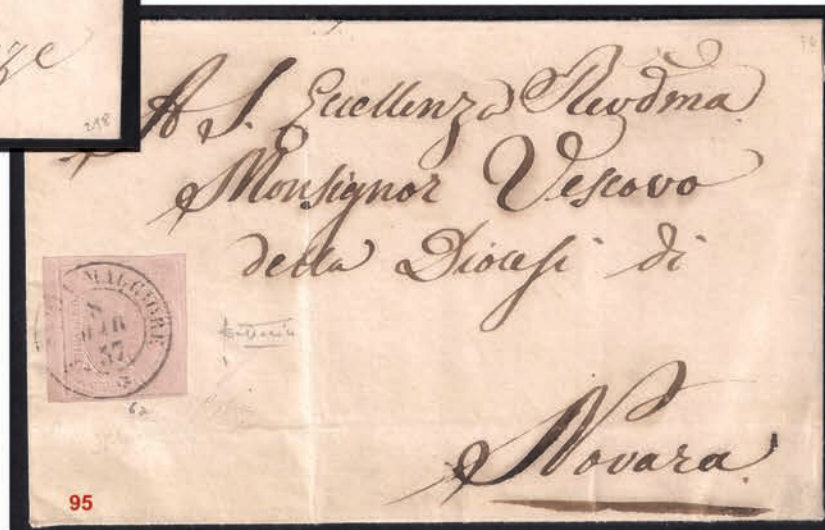 ze
298
A S. Eccellenza Revdma
Monsignor Vescovo
della Diocesi di
Novara
MAGGIORE
MAR
57
95